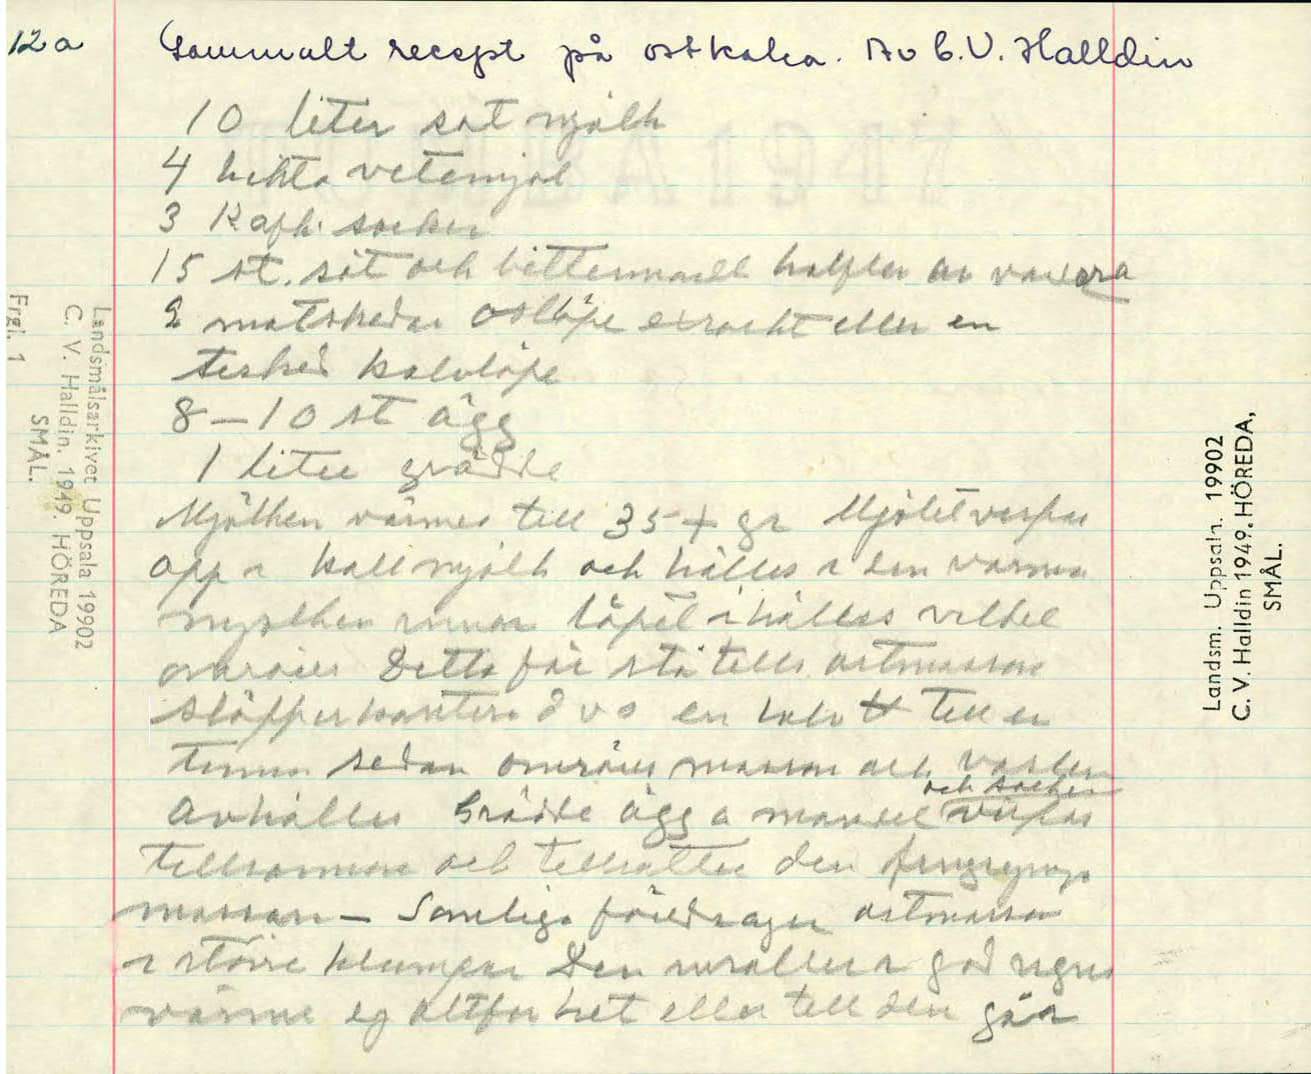 12 a
Gammalt recept på ostkaka. Av C. V. Halldin
10 liter söt mjölk
4 hekto vetemjöl
3 kafk. socker
15 st. söt och bittermandl halften av vardera
2 matskedar ostlöpe exrackt eller en
tesked kalvlöpe
8 – 10 st ägg
1 liter grädde
Mjölken värmes till 35 + gr Mjölet vispas
opp i kall mjölk och hälles i den varma
mjölken innan löpet ihälles
omröres Detta får stå tills ostmassan
släpper kanten d v s en halv tt till en
timma sedan omröres massan och vasslen
och socker
avhälles Grädde ägg o mandel vispas
tillsamman och tillsättes den
massan – Somliga föredrager ostmassan
i större klumpar Den i god ugns
värme ej alltför het eller till den går
Landsmålsarkivet Uppsala 19902
C. V. Halldin. 1949. HÖREDA
SMÅL.
Frgl. 1
Landsm. Uppsala. 19902
C. V. Halldin 1949. HÖREDA,
SMÅL.